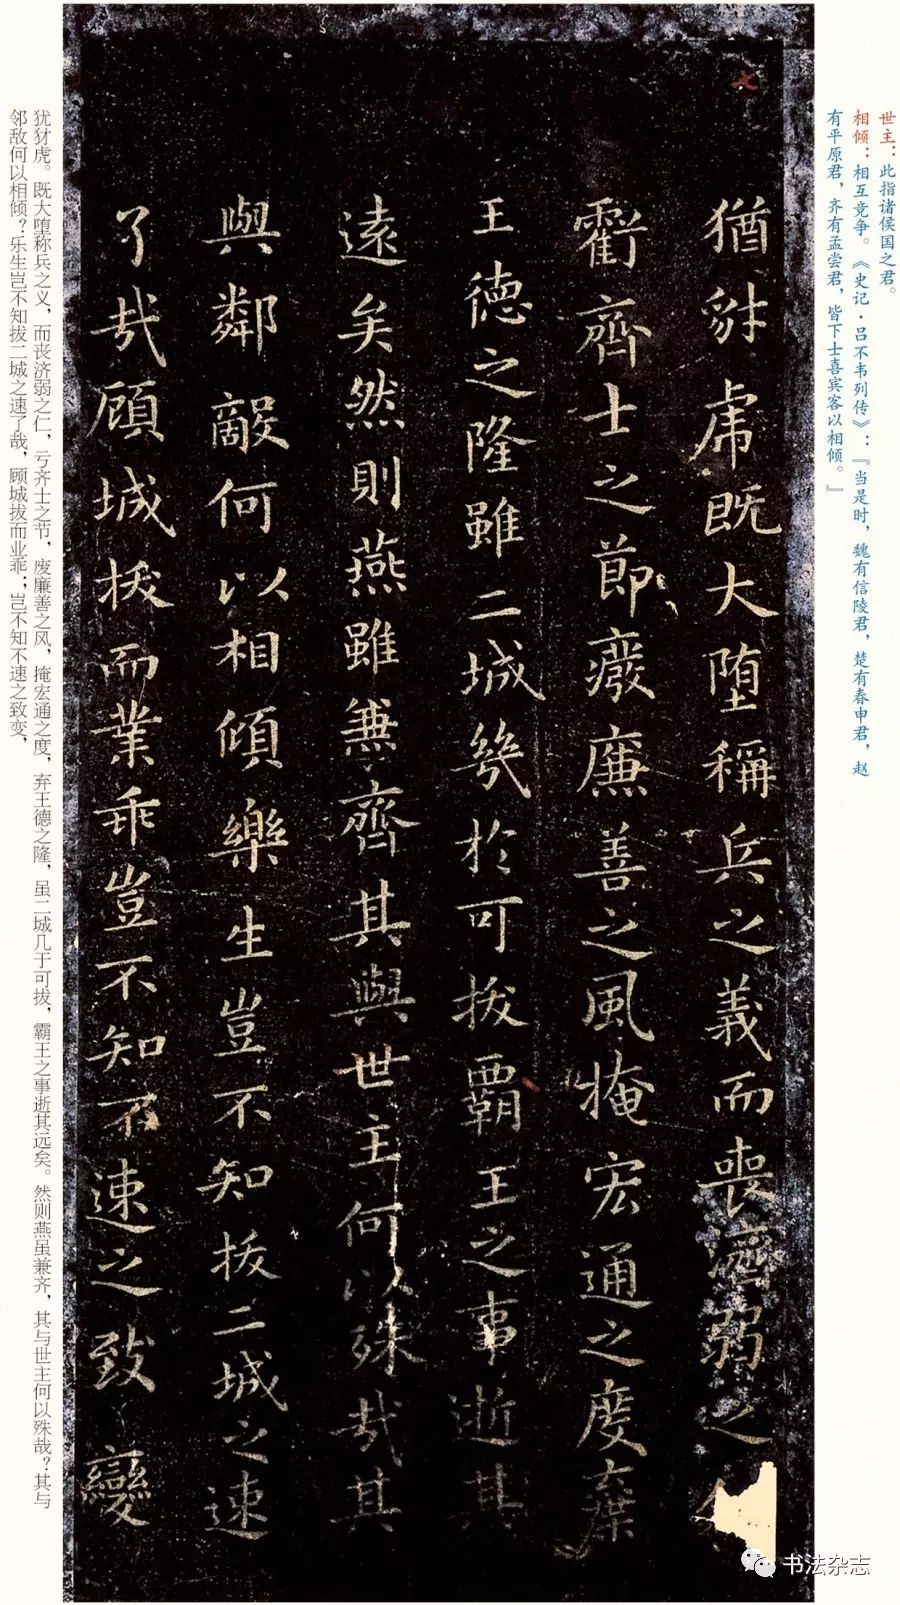 世主：此指诸侯国之君。
相倾：相互竞争。《史记·吕不韦列传》：『当是时，魏有信陵君，楚有春申君，赵
有平原君，齐有孟尝君，皆下士喜宾客以相倾。』
猶豺虎既大堕稱兵之義而喪濟弱之
虧齊士之節廢廉善之風掩宏通之度棄
王德之隆雖二城幾於可拔霸王之事逝其
遠矣然則燕雖兼齊其與世主何以殊哉其
與鄰敵何以相傾樂生豈不知拔二城之速
了哉顧城拔而業乖豈不知不速之致變
犹豺虎。既大堕称兵之义，而丧济弱之仁，亏齐士之节，废廉善之风，掩宏通之度，弃王德之隆，虽二城几于可拔，霸王之事逝其远矣。然则燕虽兼齐，其与世主何以殊哉？其与
邻敌何以相倾？乐生岂不知拔二城之速了哉，顾城拔而业乖；岂不知不速之致变，
书法杂志